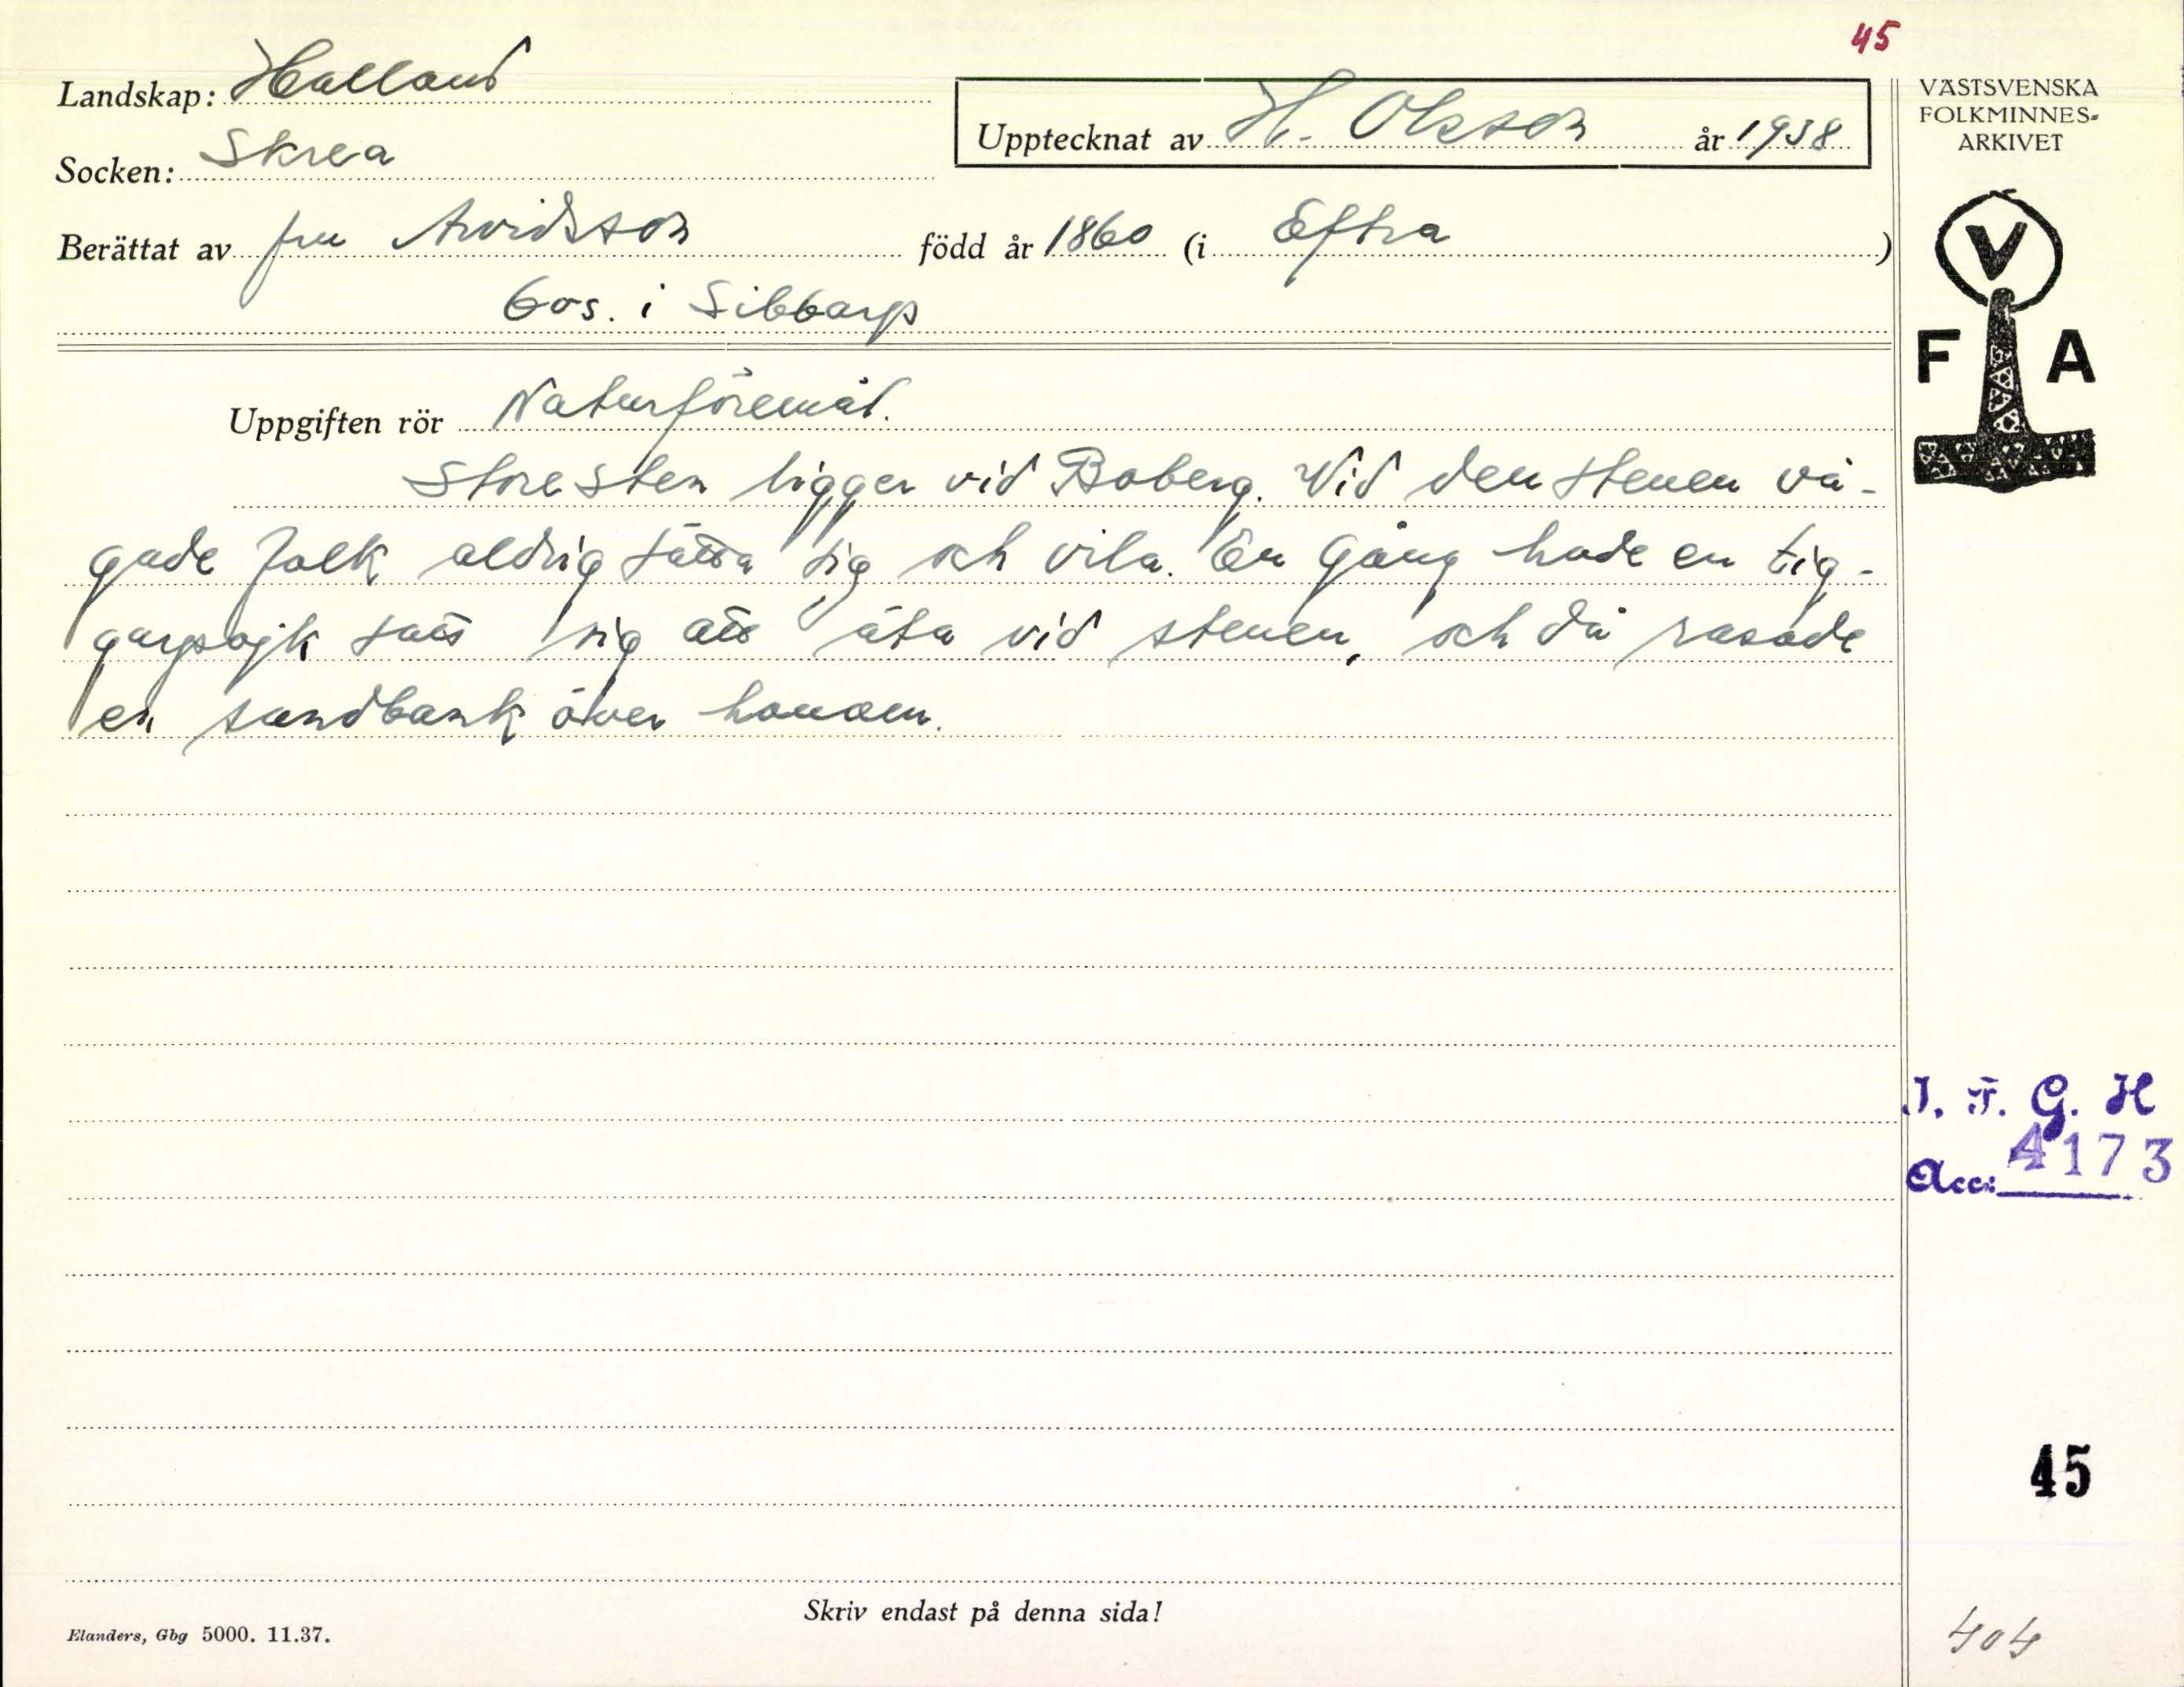 45
Landskap: Halland
Socken: Skrea
Upptecknat av H. Olsson år 1938
VÄSTSVENSKA
FOLKMINNES=
ARKIVET
Berättat av fru Arvidsson född år 1860 (i Eftra)
bos. i Sibbarp
V
F A
Uppgiften rör Naturföremål.
Store sten ligger vid Boberg. Vid den stenen vå-
gade folk aldrig sätta sig och vila. En gång hade en tig-
garpojk satt sig att äta vid stenen, och då rasade
en sandbank över honom.
I. F. G. H
Acc: 4173
45
Skriv endast på denna sida!
Elanders, Gbg 5000. 11.37.
404